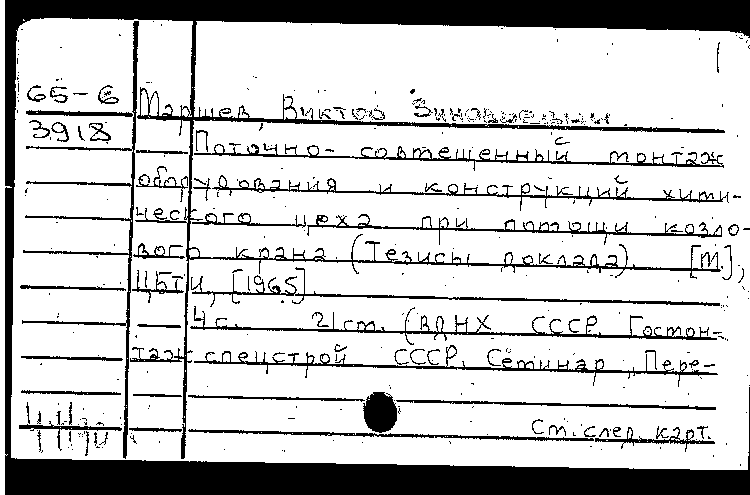 65-6 Маршев, Виктор Зиновьевич.
3918 Поточно-совмещенный монтаж
оборудования и конструкций хими-
ческого цеха при помощи козло-
вого крана. (Тезисы доклада). [М.],
ЦБТИ, [1965].
4 с. 21 см. (ВДНХ СССР. Госмон-
тажспецстрой СССР. Семинар „Пере-
См. след. карт.